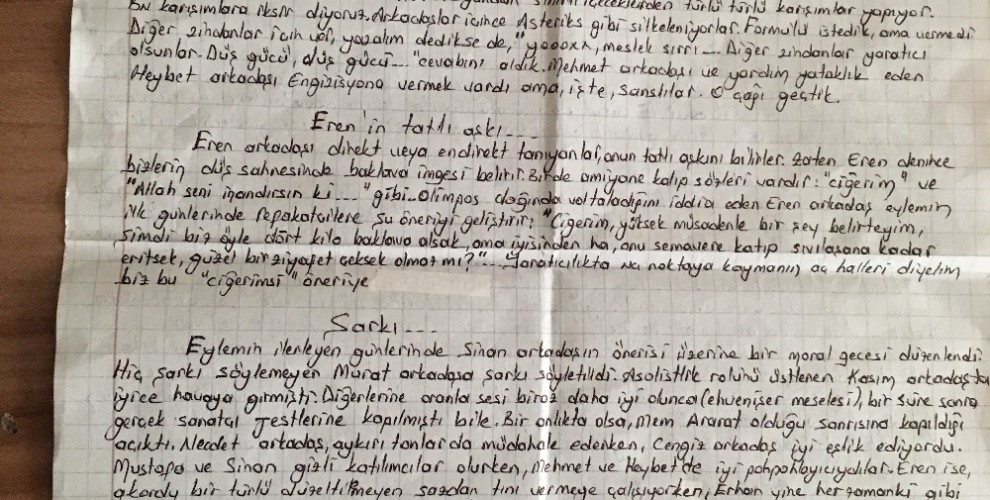 sınırlı içeceklerden türlü türlü karışımlar yapıyor.
Bu karışımlara iksir diyoruz. Arkadaşlar içince Asteriks gibi silkeleniyorlar. Formülü istedik, ama vermedi
Diğer zindanlar için ver, yazalım dedikse de, "yooox, meslek sırrı... Diğer zindanlar yaratıcı
olsunlar. Düş gücü, düş gücü..." cevabını aldık. Mehmet arkadaşı ve yardım yataklık eden
Heybet arkadaşı Engizisyona vermek vardı ama, işte, şanslılar. O çağı geçtik.
Eren'in tatlı aşkı...
Eren arkadaşı direkt veya endirekt tanıyanlar, onun tatlı aşkını bilirler. Zaten Eren denince
bizlerin düş sahnesinde baklava imgesi belirir. Bir de amiyane kalıp sözleri vardır: "ciğerim" ve
"Allah seni inandırsın ki..." gibi. Olimpos dağında voltaladığını iddia eden Eren arkadaş eylemin
ilk günlerinde refakatçilere şu öneriyi geliştirir: "Ciğerim, yüksek müsadenle bir şey belirteyim,
şimdi biz öyle dört kilo baklava alsak, ama iyisinden ha, onu semavere katıp sıvılaşana kadar
eritsek, güzel bir ziyafet çeksek olmaz mı?"... Yaratıcılıkta na noktaya kaymanın aç halleri diyelim
biz bu "ciğerimsi" öneriye
Şarkı...
Eylemin ilerleyen günlerinde Sinan arkadaşın önerisi üzerine bir moral gecesi düzenlendi.
Hiç şarkı söylemeyen Murat arkadaşa şarkı söyletildi. Asolistlik rolünü üstlenen Kasım arkadaş ta
iyice havaya girmişti. Diğerlerine oranla sesi biraz daha iyi olunca (ehvenişer meselesi), bir süre sonra
gerçek sanatçı jestlerine kapılmıştı bile. Bir anlıkta olsa, Mem Ararat olduğu sanrısına kapıldığı
açıktı. Necdet arkadaş, aykırı tonlarda müdahale ederken, Cengiz arkadaş iyi eşlik ediyordu.
Mustafa ve Sinan gizli katılımcılar olurken, Mehmet ve Heybet'de iyi pohpohlayıcıydılar. Eren ise,
akordu bir türlü düzeltilmeyen sazdan tını vermeye çalışıyorken, Erhan yine her zamanki gibi